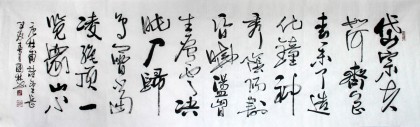 岱宗夫
如何齊魯
青未了造
化鐘神
秀陰陽割
昏曉盪胸
生層雲決
眥入歸
鳥會當
凌絕頂一
覽衆山小
唐杜甫詩望岳